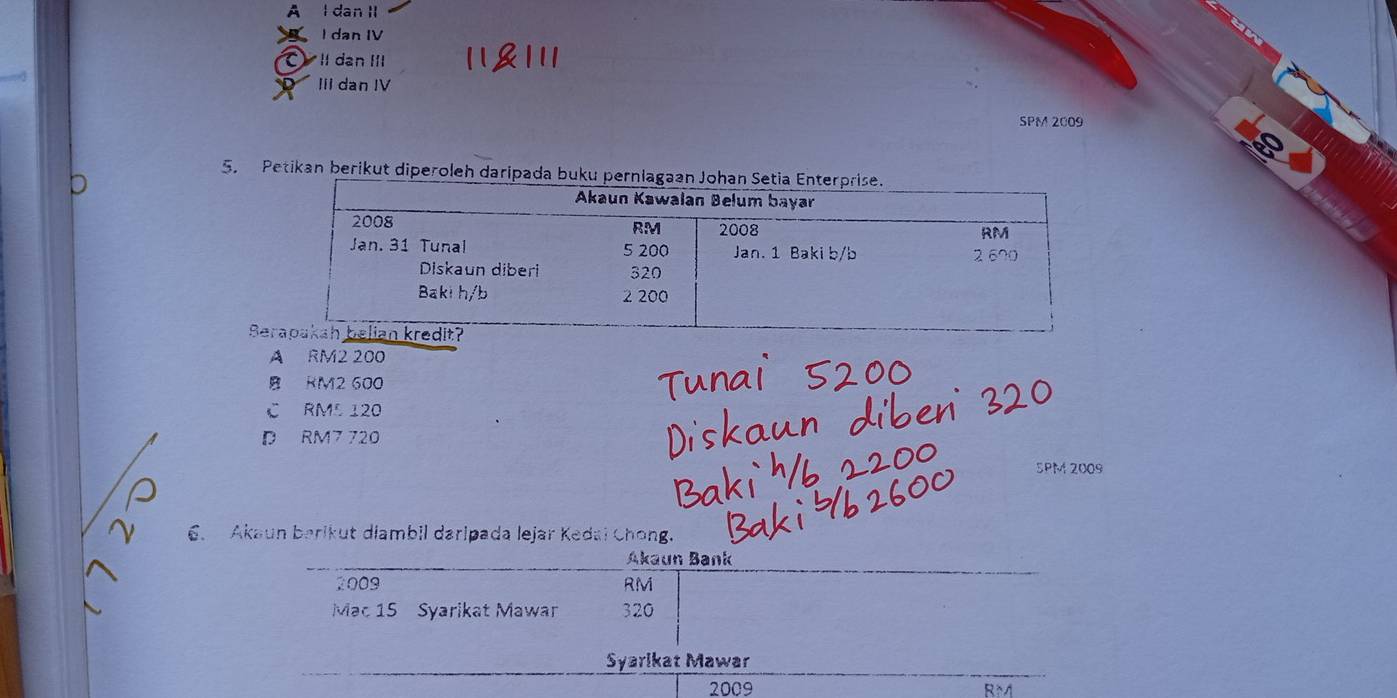 A I dan II
B I dan IV
C II dan III
D III dan IV
II & III
SPM 2009
5. Petikan berikut diperoleh daripada buku perniagaan Johan Setia Enterprise.
Akaun Kawalan Belum bayar
2008 RM 2008 RM
Jan. 31 Tunai 5 200 Jan. 1 Baki b/b 2 600
Diskaun diberi 320
Baki h/b 2 200
Berapakah belian kredit?
A RM2 200
B RM2 600
C RM5 120
D RM7 720
Tunai 5200
Diskaun diberi 320
Baki h/b 2200
Baki b/b 2600
SPM 2009
6. Akaun berikut diambil daripada lejar Kedai Chong.
Akaun Bank
2009 RM
Mac 15 Syarikat Mawar 320
Syarikat Mawar
2009 RM